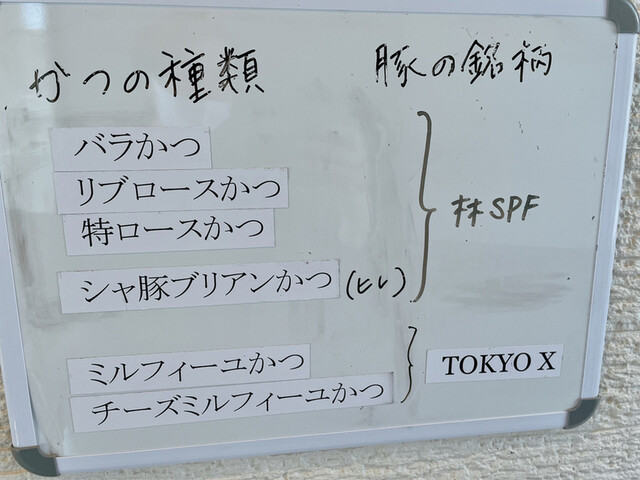 かつの種類
豚の銘柄
バラかつ
リブロースかつ
特ロースかつ
シャ豚ブリアンかつ(ヒレ)
林SPF
ミルフィーユかつ
チーズミルフィーユかつ
TOKYO X